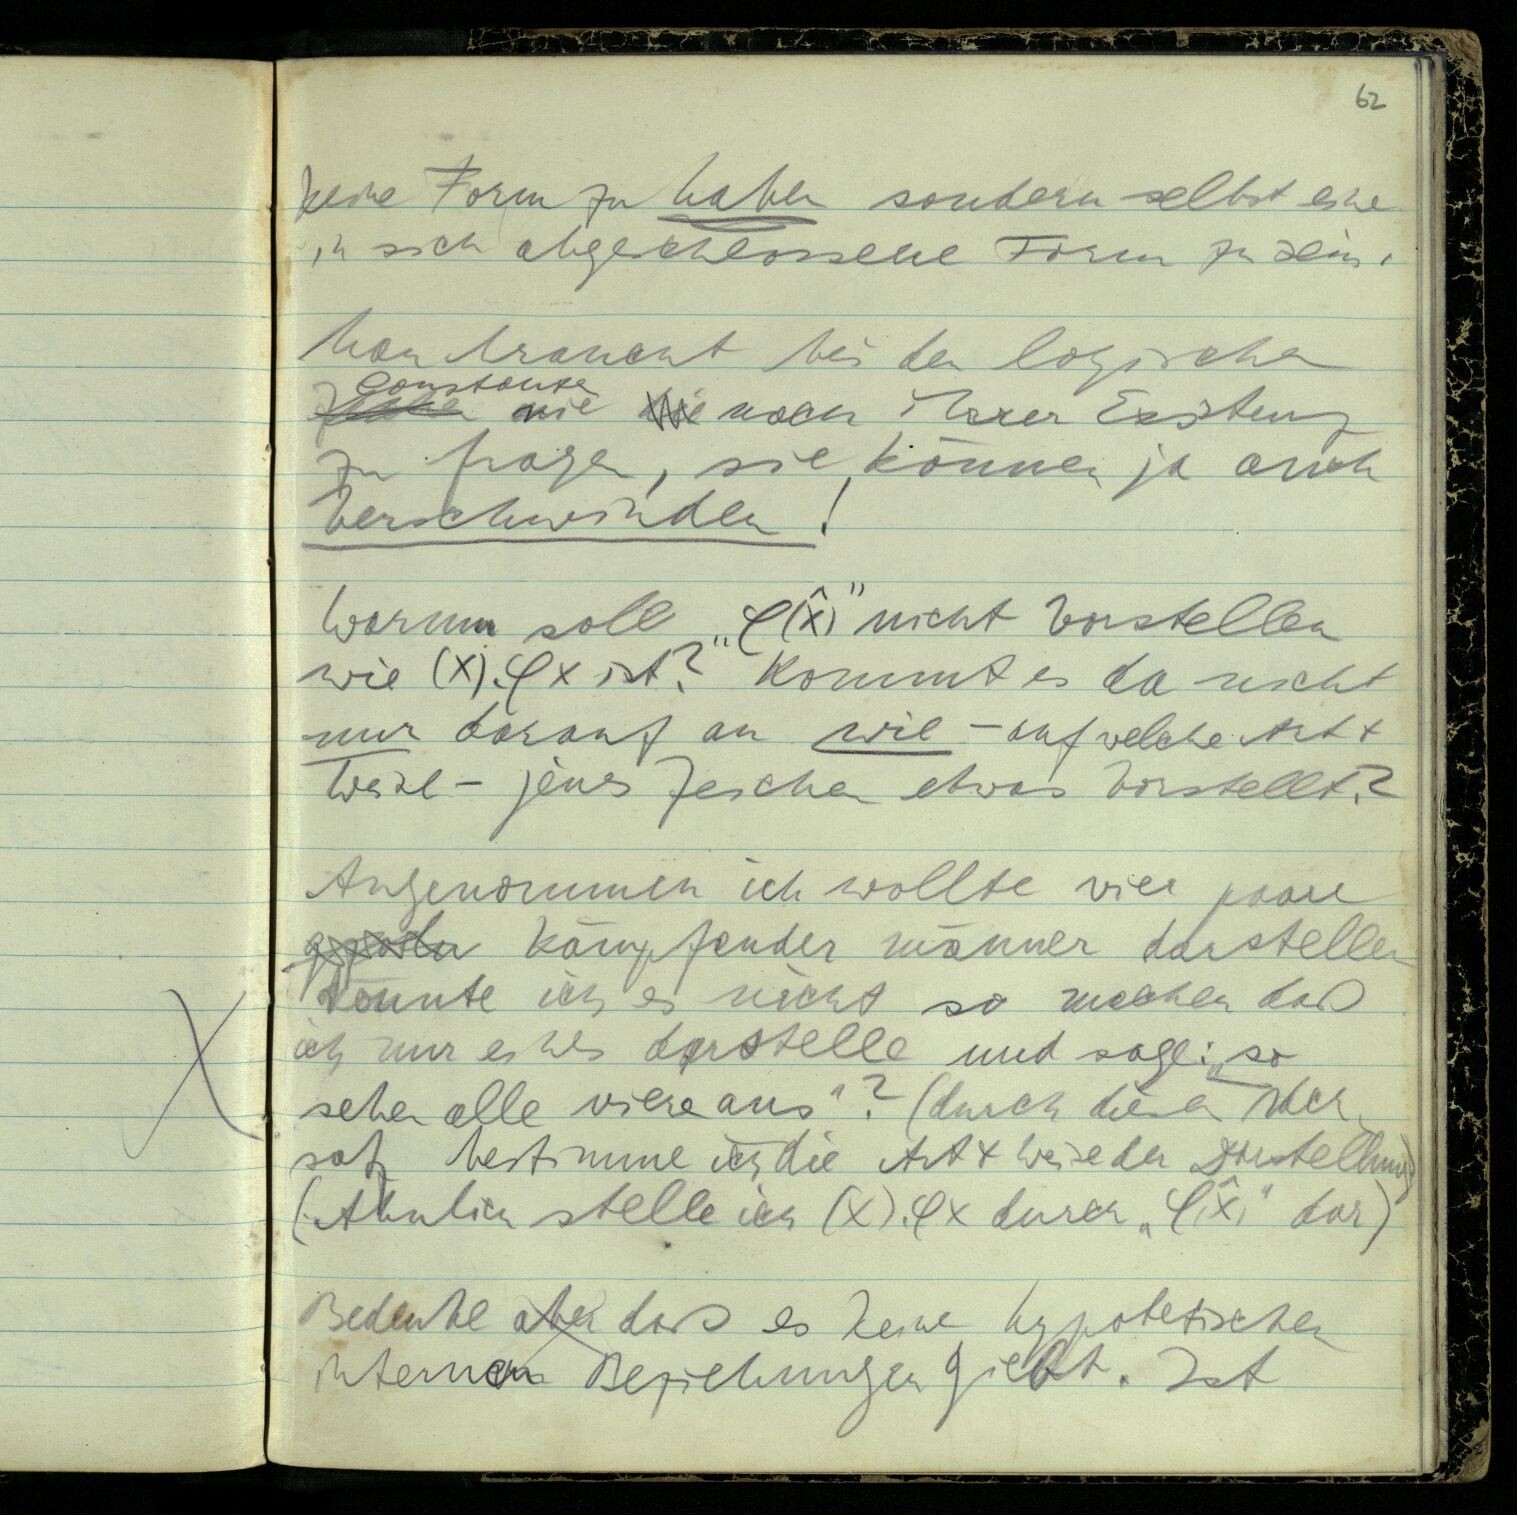 62
keine Form zu haben sondern selbst eine
in sich abgeschlossene Form zu sein.
Man braucht bei den logischen
Constante
nie nach ihrer Existenz
zu fragen, sie können ja auch
verschwinden!
Warum soll „φ(x̂)” nicht vorstellen
wie (x).φx ist? Kommt es da nicht
nur darauf an wie – auf welche Art +
Weise – jenes Zeichen etwas vorstellt?
Angenommen ich wollte vier paare
kämpfender männer darstellen
könnte ich es nicht so machen daß
ich nur eines darstelle und sage: „so
sehen alle viere aus”? (durch diesen Nach
satz bestimme ich die Art + Weise der Darstellung)
(Ähnlich stelle ich (x).φx durch „φ(x̂)” dar)
Bedenke aber daß es keine hypotetischen
internen Beziehungen giebt. Ist